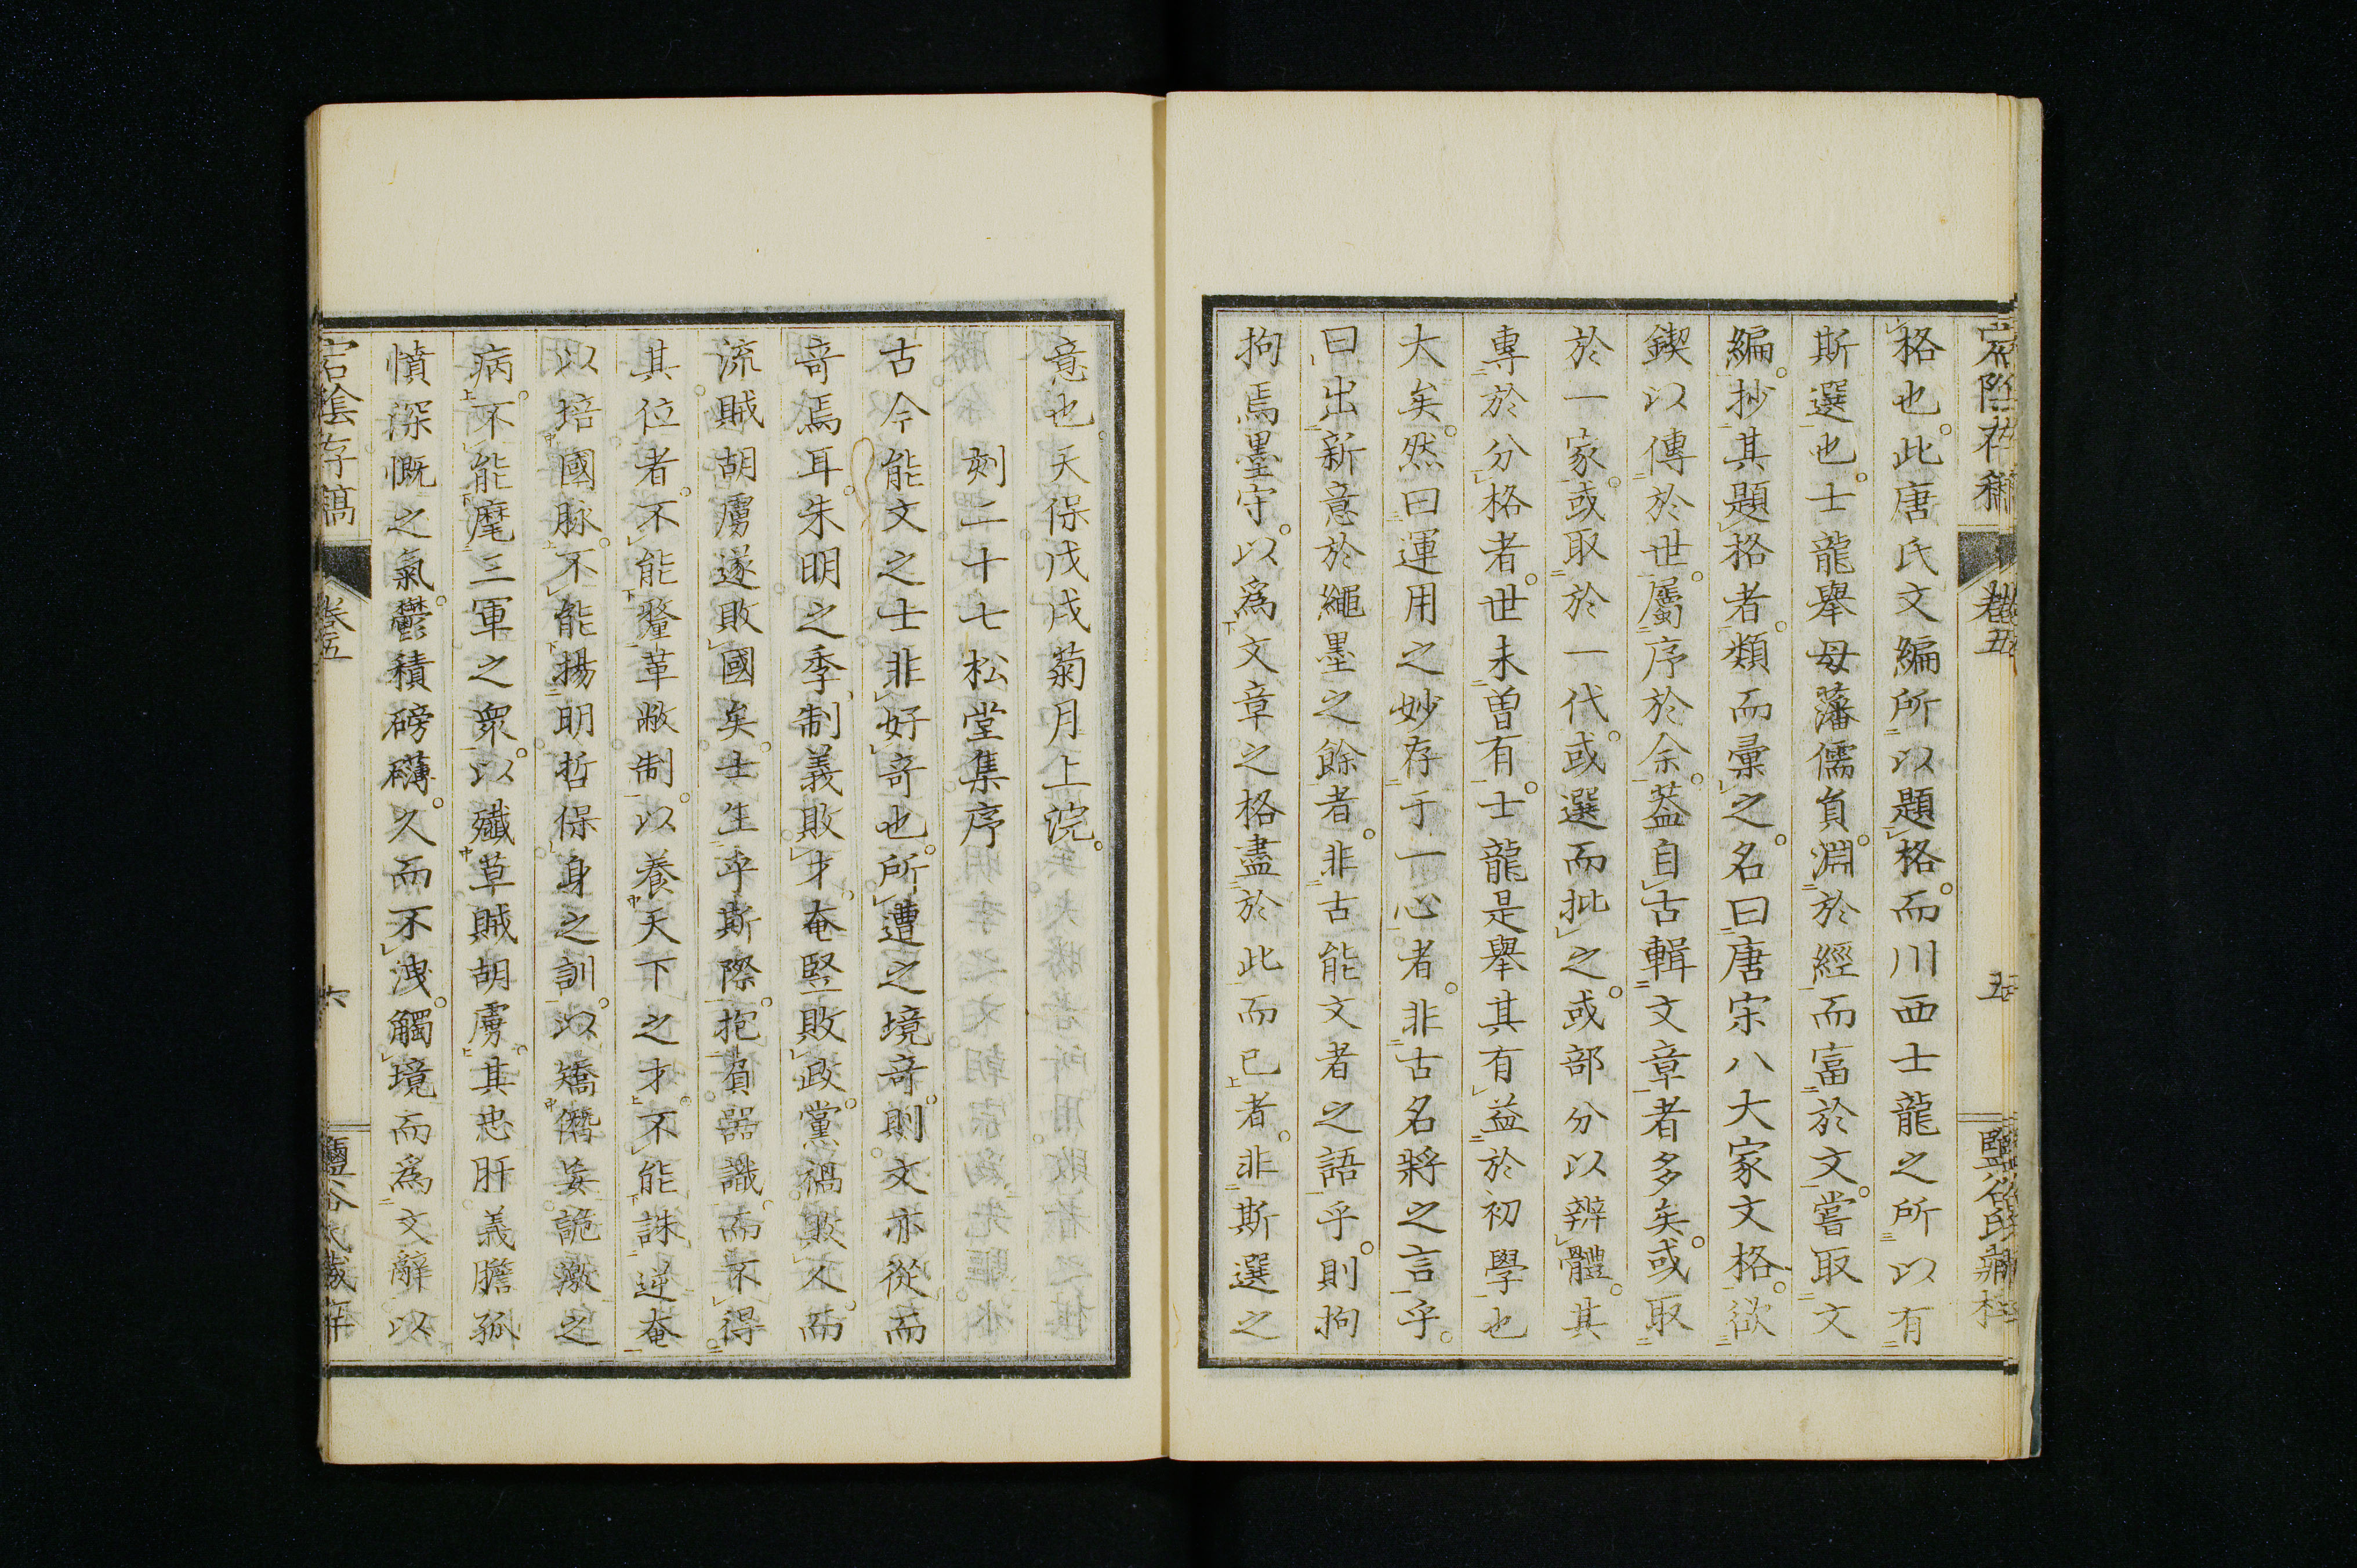 格也。此唐氏文編所以題格。而川西士龍之所以有
斯選也。士龍舉毋藩儒員。淵於經而富於文。嘗取文
編。抄其題格者。類而彙之。名曰唐宋八大家文格。欲
鍥以傳於世。屬序於余。蓋自古輯文章者多矣。或取
於一家。或取於一代。或選而批之。或部分以辨體。其
專於分格者。世未曽有。士龍是舉其有益於初學也
大矣。然曰運用之妙存于一心者。非古名將之言乎。
曰出新意於繩墨之餘者。非古能文者之語乎。則拘
拘焉墨守。以為文章之格盡於此而已者。非斯選之
意也。天保戊戌菊月上浣。
刻二十七松堂集序
古今能文之士非好奇也。所遭之境奇。則文亦從而
奇焉耳。朱明之季、制義敗才。奄竪敗政。黨禍敗人。而
流賊胡虜遂敗國矣。士生乎斯際。抱負器識。而不得
其位者。不能釐革敝制。以養天下之才。不能誅逆奄
以培國脉。不能揚明哲保身之訓。以矯僭妄詭激之
病。不能麾三軍之衆。以殱草賊胡虜。其忠肝義膽孤
憤深慨之氣。鬱積磅礴。久而不洩。觸境而為文辭以
宕陰存稿
卷五
六